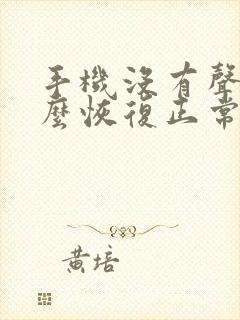 手機沒有聲
麼恢復正常
黃培